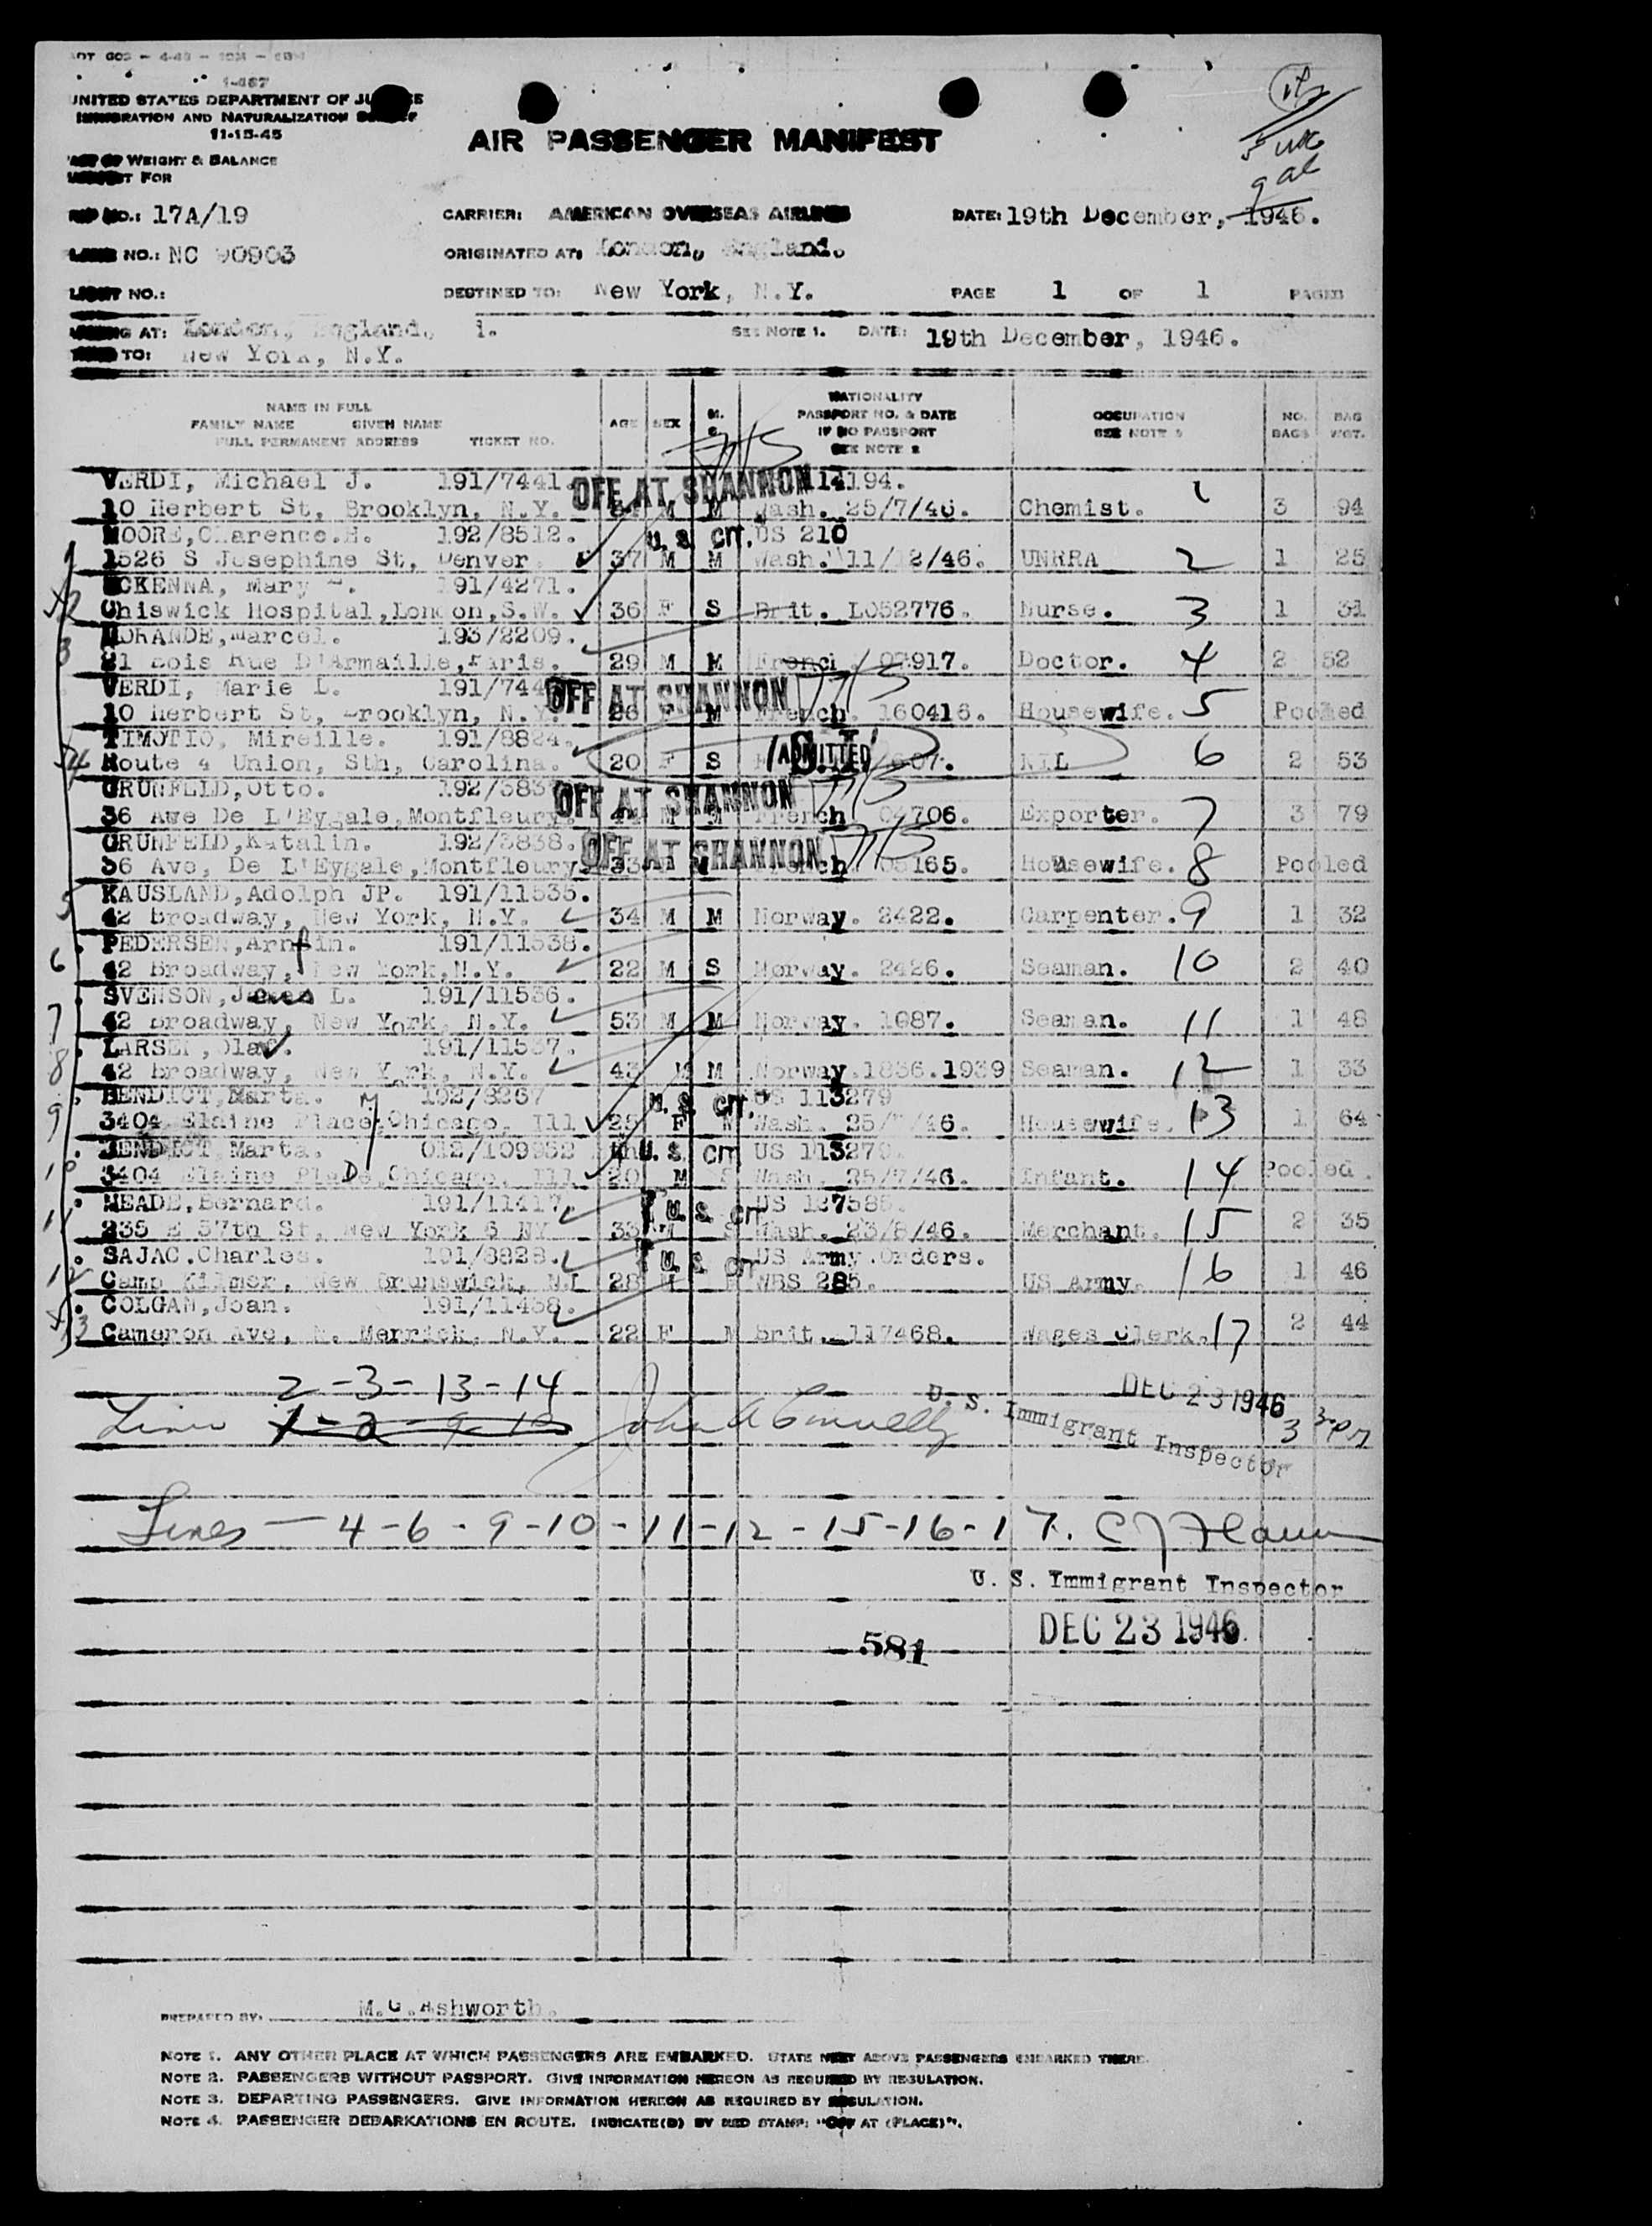 1-467
UNITED STATES DEPARTMENT OF JUSTICE
IMMIGRATION AND NATURALIZATION SERVICE
11-15-45
AIR PASSENGER MANIFEST
PART OF WEIGHT & BALANCE
MANIFEST FOR
TRIP NO.: 17A/19 CARRIER: AMERICAN OVERSEAS AIRLINES DATE: 19th December, 1946.
PLANE NO.: NC 90903 ORIGINATED AT: London, England.
FLIGHT NO.: DESTINED TO: New York, N.Y. PAGE 1 OF 1 PAGES
AT: London, England. SEE NOTE 1. DATE: 19th December, 1946.
TO: New York, N.Y.
NAME IN FULL
FAMILY NAME GIVEN NAME
FULL PERMANENT ADDRESS TICKET NO. AGE SEX M. S. NATIONALITY PASSPORT NO. & DATE IF NO PASSPORT SEE NOTE 2 OCCUPATION SEE NOTE 3 NO. BAGS BAG WGT.
VERDI, Michael J. 191/7441. OFF AT SHANNON 14194.
10 Herbert St, Brooklyn, N.Y. M M Wash. 25/7/46. Chemist. 1 3 94
MOORE, Clarence.H. 192/8512. U. S. CIT. US 210
1526 S Josephine St, Denver 37 M M Wash. 11/12/46. UNRRA 2 1 25
MCKENNA, Mary 191/4271.
Chiswick Hospital, London, S.W. 36 F S Brit. L052776. Nurse. 3 1 31
MORANDE, Marcel. 193/2209.
21 Bois Rue D'Armaille, Paris. 29 M M French. 917. Doctor. 4 2 52
VERDI, Marie L. 191/744 OFF AT SHANNON
10 Herbert St, Brooklyn, N.Y. 26 M French. 160416. Housewife. 5 Pooled
TIMOTIO, Mireille. 191/8824. ADMITTED
Route 4 Union, Sth, Carolina. 20 F S NIL 6 2 53
GRUNFELD, Otto. 192/383 OFF AT SHANNON
36 Ave De L'Eygale, Montfleury. M M French 04706. Exporter. 7 3 79
GRUNFELD, Katalin. 192/3838. OFF AT SHANNON
36 Ave, De L'Eygale, Montfleury. 33 French 05165. Housewife. 8 Pooled
KAUSLAND, Adolph JP. 191/11535.
42 Broadway, New York, N.Y. 34 M M Norway. 2422. Carpenter. 9 1 32
PEDERSEN, Arnfin. 191/11538.
42 Broadway, New York, N.Y. 22 M S Norway. 2426. Seaman. 10 2 40
SVENSON, L. 191/11536.
42 Broadway, New York, N.Y. 53 M M Norway. 1087. Seaman. 11 1 48
LARSEN, Olav. 191/11537.
42 Broadway, New York, N.Y. 43 M M Norway. 1836.1939 Seaman. 12 1 33
BENDICT, Marta. 192/8267 U. S. CIT. US 113279
3404 Elaine Place, Chicago, Ill 25 F M Wash. 25/7/46. Housewife. 13 1 64
BENDICT, Marta. 012/109952 U. S. CIT US 113279.
3404 Elaine Place, Chicago, Ill M S Wash. 25/7/46. Infant. 14 Pooled.
MEADE, Bernard. 191/11417. U. S. CIT US 127585.
235 E 57th St, New York 6 NY 33 M S Wash. 23/8/46. Merchant. 15 2 35
SAJAC. Charles. 191/8828. U. S. CIT US Army Orders.
Camp Kilmer, New Brunswick, NJ 28 M WBS 285. US Army. 16 1 46
COLGAN, Joan. 191/11458.
Cameron Ave, N. Merrick, N.Y. 22 F M Brit. 117468. Wages Clerk. 17 2 44
2 - 3 - 13 - 14 DEC 23 1946
Lines John A Connelly U. S. Immigrant Inspector
Lines — 4 - 6 - 9 - 10 - 11 - 12 - 15 - 16 - 17.
U. S. Immigrant Inspector
DEC 23 1946
581
PREPARED BY: M.G. Ashworth.
NOTE 1. ANY OTHER PLACE AT WHICH PASSENGERS ARE EMBARKED. STATE NEXT ABOVE PASSENGERS EMBARKED THERE.
NOTE 2. PASSENGERS WITHOUT PASSPORT. GIVE INFORMATION HEREON AS REQUIRED BY REGULATION.
NOTE 3. DEPARTING PASSENGERS. GIVE INFORMATION HEREON AS REQUIRED BY REGULATION.
NOTE 4. PASSENGER DEBARKATIONS EN ROUTE. INDICATE(D) BY RED STAMP: "OFF AT (PLACE)".